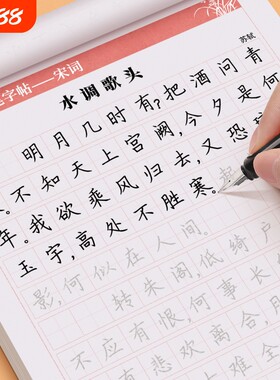 88
字帖——宋词
苏轼
水调歌头
明月几时有?把酒问青
。不知天上宫阙,今夕是何
年。我欲乘风归去,又恐
玉宇,高处不胜寒。
影,何似在人间。
转朱阁,低绮户
不应有恨,何事长
有悲欢离合,